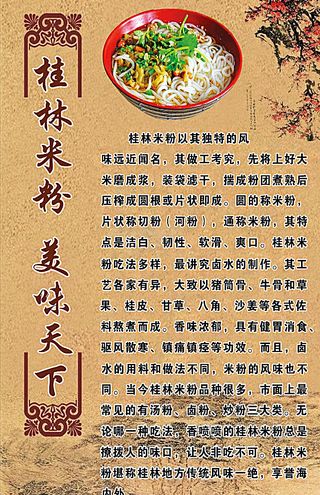 桂林米粉 美味天下
桂林米粉以其独特的风
味远近闻名，其做工考究，先将上好大
米磨成浆，装袋滤干，揣成粉团煮熟后
压榨成圆根或片状即成。圆的称米粉，
片状称切粉（河粉），通称米粉，其特
点是洁白、韧性、软滑、爽口。桂林米
粉吃法多样，最讲究卤水的制作。其工
艺各家有异，大致以猪筒骨、牛骨和草
果、桂皮、甘草、八角、沙姜等各式佐
料熬煮而成。香味浓郁，具有健胃消食、
驱风散寒、镇痛镇痉等功效。而且，卤
水的用料和做法不同，米粉的风味也不
同。当今桂林米粉品种很多，市面上最
常见的有汤粉、卤粉、炒粉三大类。无
论哪一种吃法，香喷喷的桂林米粉总是
撩拨人的味口，让人非吃不可。桂林米
粉堪称桂林地方传统风味一绝，享誉海
内外